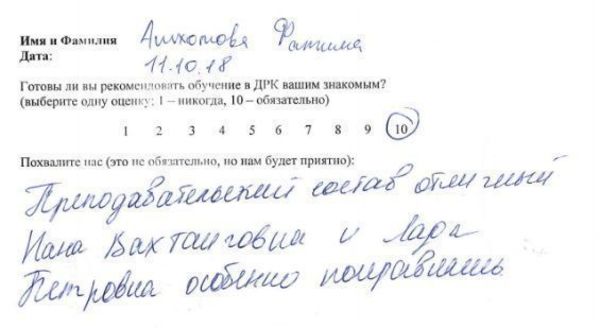 Имя и Фамилия Фатима
Дата: 11.10.18
Готовы ли вы рекомендовать обучение в ДРК вашим знакомым?
(выберите одну оценку: 1 – никогда, 10 – обязательно)
1 2 3 4 5 6 7 8 9 10
Похвалите нас (это не обязательно, но нам будет приятно):
Преподавательский состав отличный
Нана Вахтанговна и Лара
Петровна особенно понравились